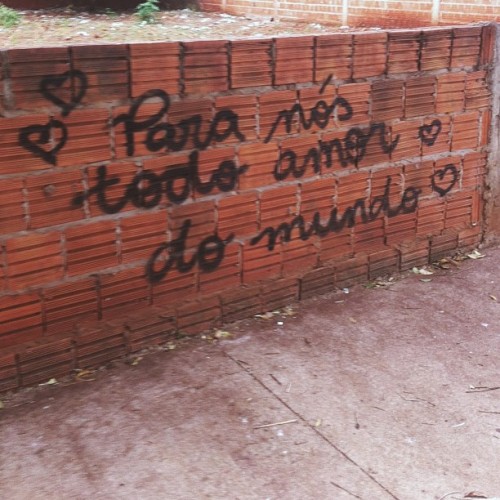 Para nós
todo amor
do mundo